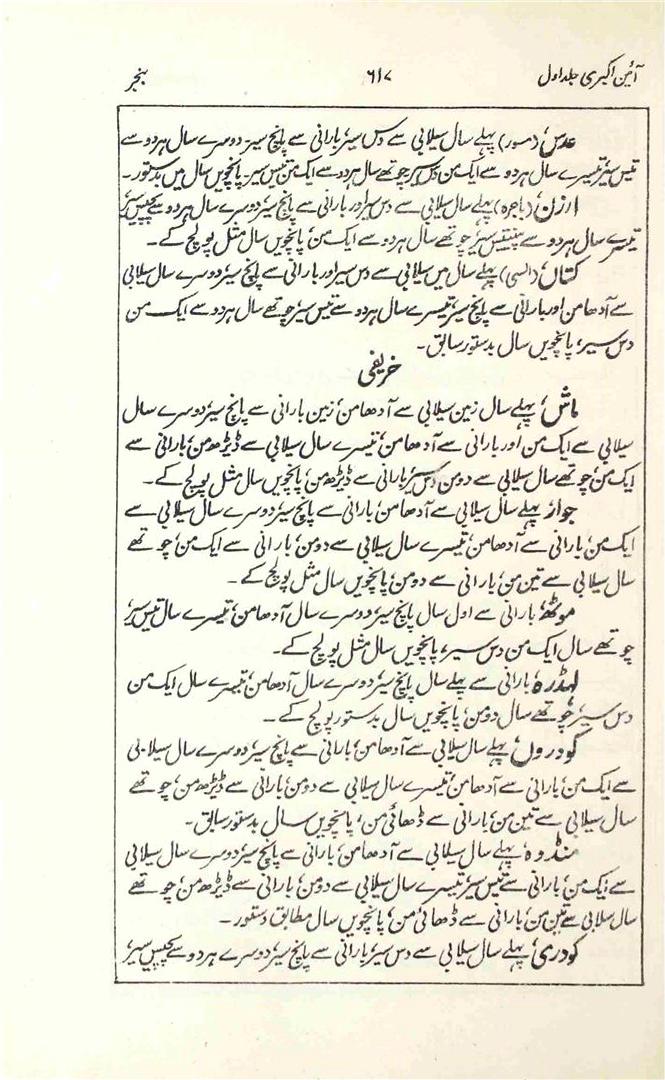 آئین اکبری جلد اول ۶۱۷ بنجر
عدس (مسور) پہلے سال سیلابی سے دس سیر، بارانی سے پانچ سیر، دوسرے سال ہر دو سے
تیس سیر، تیسرے سال ہر دو سے ایک من دس سیر، چوتھے سال ہر دو سے ایک من تیس سیر۔ پانچویں سال میں بدستور۔
ارزن، (باجرہ) پہلے سال سیلابی سے دس سیر اور بارانی سے پانچ سیر، دوسرے سال ہر دو سے پچیس سیر
تیسرے سال ہر دو سے پینتیس سیر، چوتھے سال ہر دو سے ایک من، پانچویں سال مثل پولج کے۔
کتاں، (السی) پہلے سال میں سیلابی سے دس سیر اور بارانی سے پانچ سیر، دوسرے سال سیلابی
سے آدھا من اور بارانی سے پانچ سیر، تیسرے سال ہر دو سے تیس سیر، چوتھے سال ہر دو سے ایک من
دس سیر، پانچویں سال بدستور سابق۔
خریفی
ماش، پہلے سال زمین سیلابی سے آدھا من، زمین بارانی سے پانچ سیر، دوسرے سال
سیلابی سے ایک من اور بارانی سے آدھا من، تیسرے سال سیلابی سے ڈیڑھ من، بارانی سے
ایک من، چوتھے سال سیلابی سے دو من دس سیر، بارانی سے ڈیڑھ من، پانچویں سال مثل پولج کے۔
جوار، پہلے سال سیلابی سے آدھا من، بارانی سے پانچ سیر، دوسرے سال سیلابی سے
ایک من، بارانی سے آدھا من، تیسرے سال سیلابی سے دو من، بارانی سے ایک من، چوتھے
سال سیلابی سے تین من، بارانی سے دو من، پانچویں سال مثل پولج کے۔
موٹھ، بارانی سے اول سال پانچ سیر، دوسرے سال آدھا من، تیسرے سال تیس سیر
چوتھے سال ایک من دس سیر، پانچویں سال مثل پولج کے۔
لہڈرہ، بارانی سے پہلے سال پانچ سیر، دوسرے سال آدھا من، تیسرے سال ایک من
دس سیر، چوتھے سال دو من، پانچویں سال بدستور پولج کے۔
کودروں، پہلے سال سیلابی سے آدھا من، بارانی سے پانچ سیر، دوسرے سال سیلابی
سے ایک من، بارانی سے آدھا من، تیسرے سال سیلابی سے دو من، بارانی سے ڈیڑھ من، چوتھے
سال سیلابی سے تین من، بارانی سے ڈھائی من، پانچویں سال بدستور سابق۔
منڈوہ، پہلے سال سیلابی سے آدھا من، بارانی سے پانچ سیر، دوسرے سال سیلابی
سے ایک من، بارانی سے تیس سیر، تیسرے سال سیلابی سے دو من، بارانی سے ڈیڑھ من، چوتھے
سال سیلابی سے تین من، بارانی سے ڈھائی من، پانچویں سال مطابق دستور۔
کودری، پہلے سال سیلابی سے دس سیر، بارانی سے پانچ سیر، دوسرے ہر دو سے پچیس سیر،